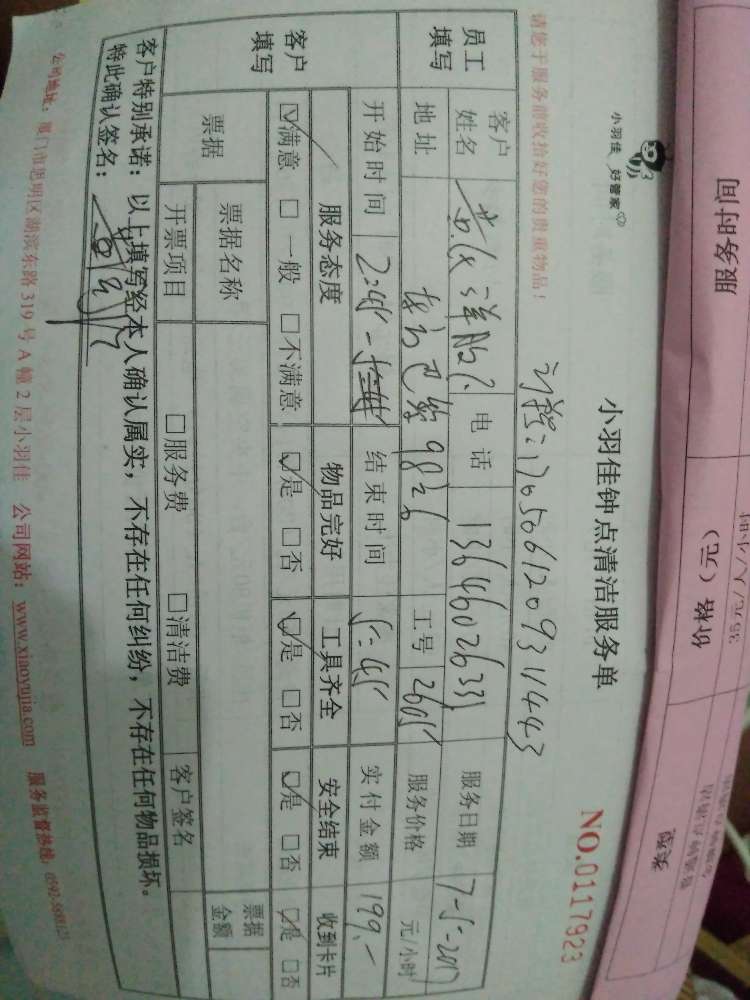 小羽佳 好管家
小羽佳钟点清洁服务单
NO.0117923
请您于服务前收拾好您的贵重物品！
170506120931443
员工填写
客户姓名
电话 13646026331
服务日期 7-5-2017
地址
工号 2605
服务价格 元/小时
开始时间 2:45
结束时间 5:45
实付金额 199.-
客户填写
服务态度 物品完好 工具齐全 安全结束 收到卡片
☑满意 □一般 □不满意 ☑是 □否 ☑是 □否 ☑是 □否 ☑是 □否
票据 票据名称 票据金额
开票项目 □服务费 □清洁费 客户签名
客户特别承诺：以上填写经本人确认属实，不存在任何纠纷，不存在任何物品损坏。
特此确认签名：
公司地址：厦门市思明区湖滨东路319号A幢2层小羽佳 公司网站：www.xiaoyujia.com 服务监督热线：
服务时间
价格（元）